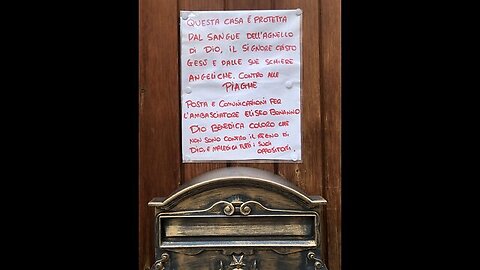 QUESTA CASA È PROTETTA
DAL SANGUE DELL'AGNELLO
DI DIO, IL SIGNORE CRISTO
GESÙ E DALLE SUE SCHIERE
ANGELICHE. CONTRO ALLE
PIAGHE
POSTA E COMUNICAZIONI PER
L'AMBASCIATORE ELISEO BONANNO
DIO BENEDICA COLORO CHE
NON SONO CONTRO IL REGNO DI
DIO, E MALEDICA TUTTI I SUOI
OPPOSITORI.